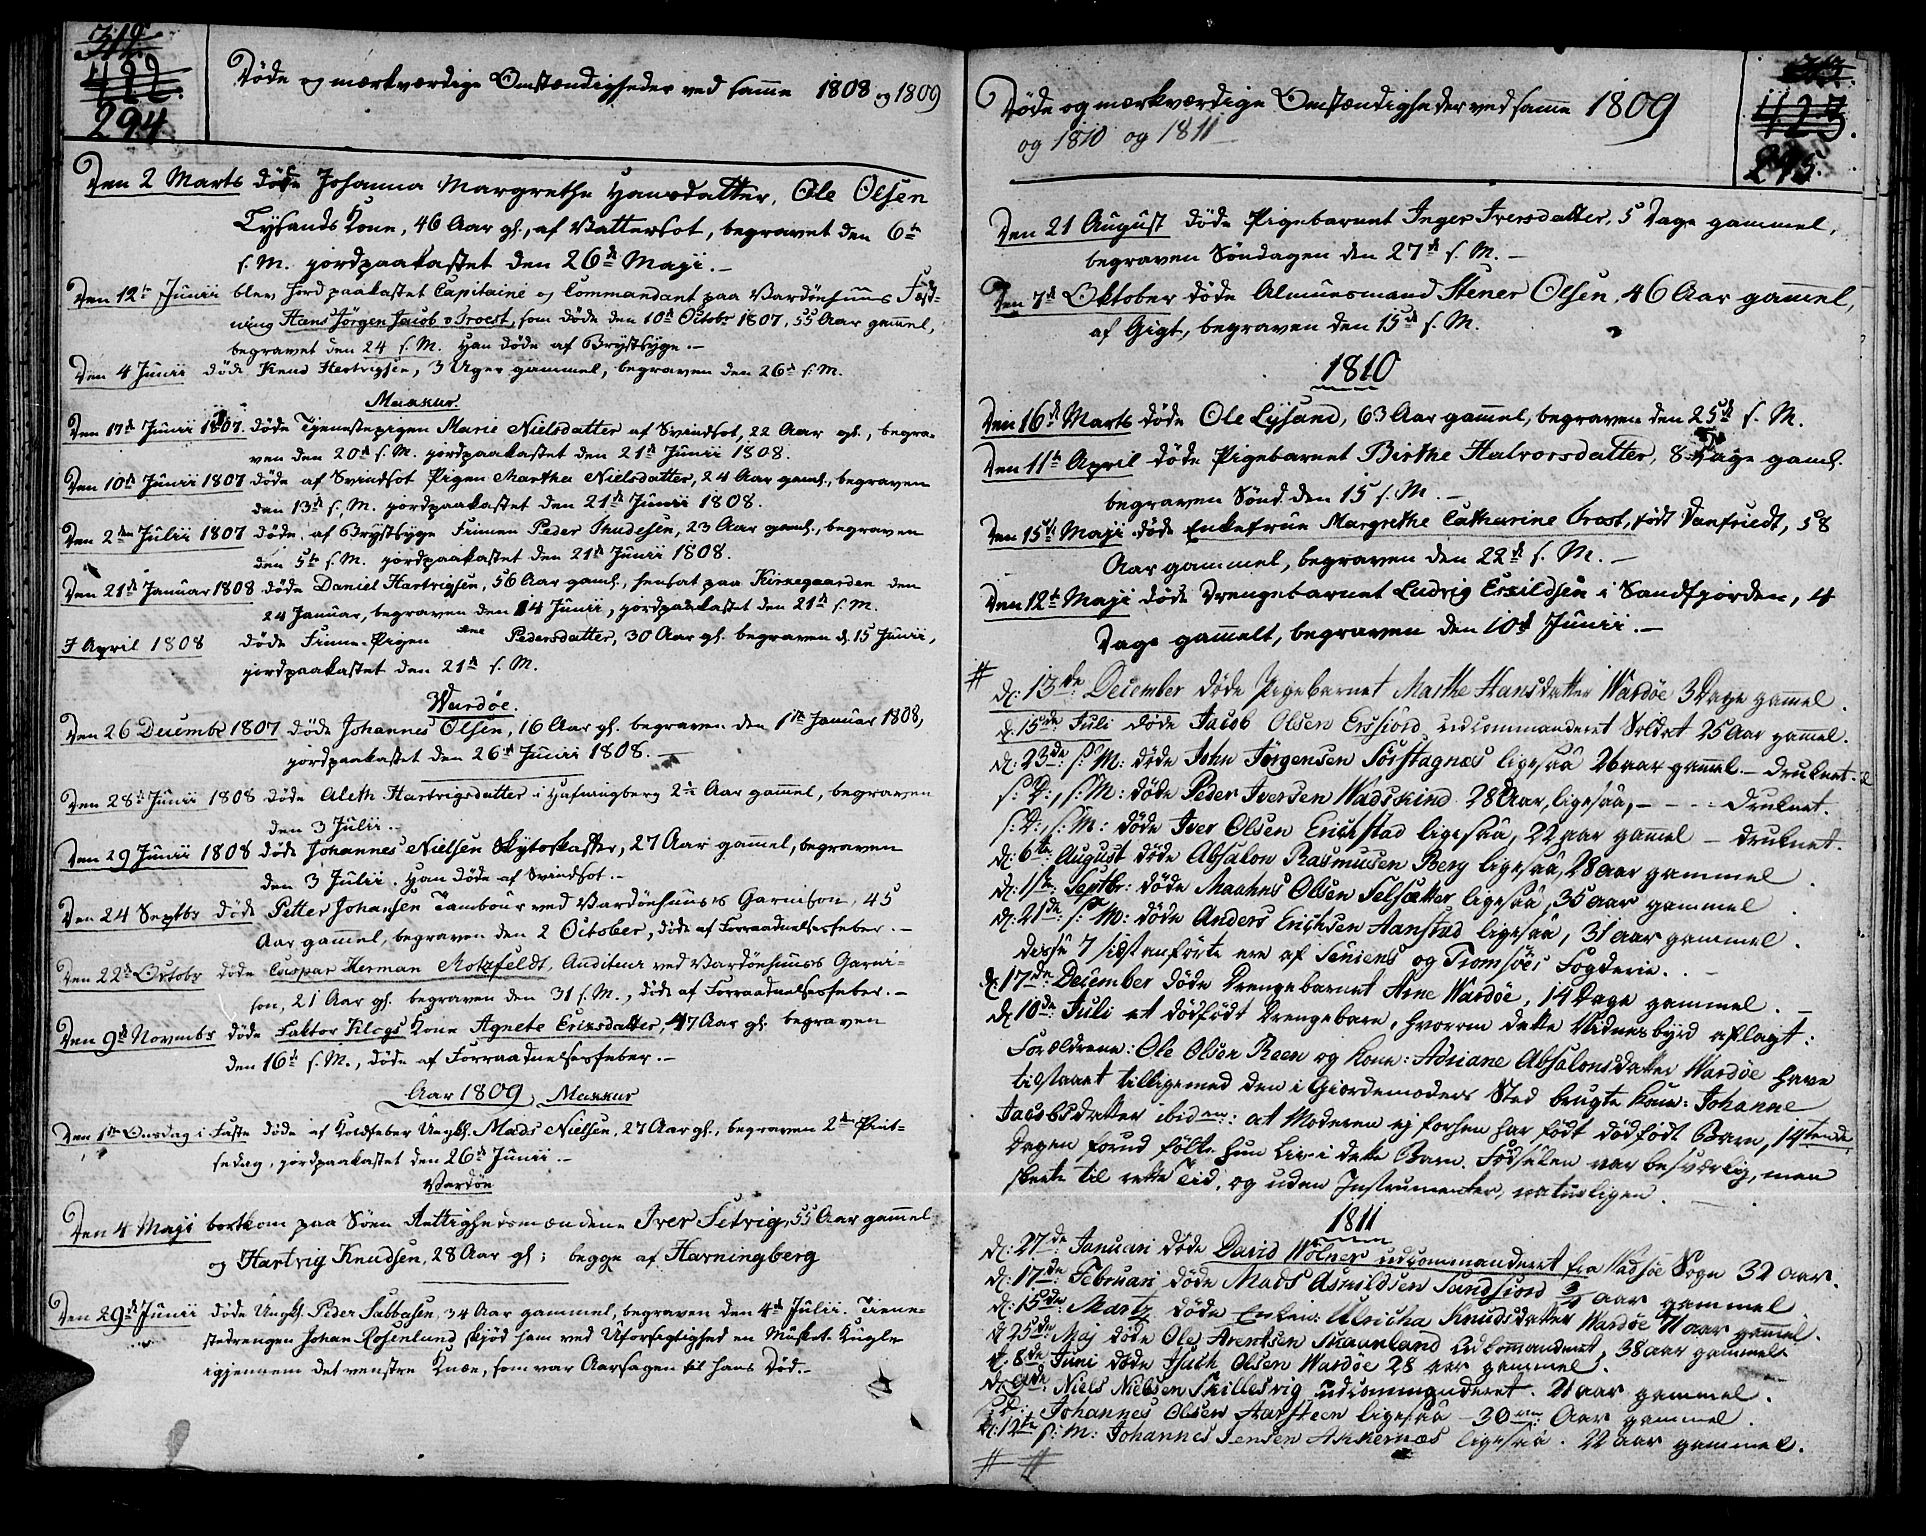 312
422.
294
Døde og mærkværdige Omstændigheder ved samme 1808 og 1809
Den 2 Marts døde Johanna Margrethe Hansdatter, Ole Olsen
Lysands Kone, 46 Aar gl., af Vattersot, begravet den 6te
s. M. jordpaakastet den 26de Maji.
Den 12te Junii blev jordpaakastet Capitaine og Commandant paa Vardöehuus Fæst-
ning Hans Jörgen Jacob v Troest, som døde den 10de Octobr 1807, 55 Aar gammel,
begravet den 24 s. M. Han døde af Brystsyge.
Den 4 Junii døde Knud Hartvigsen, 3 Uger gammel, begraven den 26de s. M.
Makkur.
Den 17de Junii 1807. døde Tjenestepigen Marie Nielsdatter af Svindsot, 22 Aar gl., begra-
ven den 20de s. M. jordpaakastet den 21de Junii 1808.
Den 10de Junii 1807 døde af Svindsot Pigen Martha Nielsdatter, 24 Aar gaml., begraven
den 13de s. M. jordpaakastet den 21de Junii 1808.
Den 2den Julii 1807 døde af Brystsyge Finnen Peder Thudesen, 23 Aar gaml., begraven
den 5te s. M. jordpaakastet den 21de Junii 1808.
Den 21de Januar 1808 døde Daniel Hartvigsen, 56 Aar gaml., hensat paa Kirkegaarden den
24 Januar, begraven den 14 Junii, jordpaakastet den 21de s. M.
7 April 1808 døde Finne-Pigen Ane Pedersdatter, 30 Aar gl. begraven d. 15 Junii,
jordpaakastet den 21de s. M.
Wardöe.
Den 26 Decembr 1807 døde Johannes Olsen, 16 Aar gl. begraven den 1ste Januar 1808,
jordpaakastet den 26de Junii 1808.
Den 28de Junii 1808 døde Aleth Hartvigsdatter i Hafningberg 2½ Aar gammel, begraven
den 3 Julii.
Den 29 Junii 1808 døde Johannes Nielsen Skytoskaffer, 27 Aar gammel, begraven
den 3 Julii. Han døde af Svindsot.
Den 24 Septbr døde Petter Johansen Tambour ved Vardöehuus's Garnison, 45
Aar gammel, begraven den 2 October, døde af Forraadnelsesfeber.
Den 22de Octobr døde Caspar Herman Rotzfeldt, Auditeur ved Vardöehuus's Garni-
son, 21 Aar gl. begraven den 31 s. M., døde af Forraadnelsesfeber.
Den 9de Novembr døde Faktor Klogs Kone Agnete Eriksdatter, 47 Aar gl. begraven
den 16de s. M., døde af Forraadnelsesfeber.
Aar 1809, Makkur
Den 1ste Onsdag i Faste døde af Koldfeber Ungk. Mads Nielsen, 27 Aar gl., begraven 2den Pint-
sedag, jordpaakastet den 26de Junii.
Vardöe
Den 4 Maji bortkom paa Söen Rettighedsmændene Iver Setvig, 55 Aar gammel
og Hartvig Knudsen, 28 Aar gl; begge af Havningberg
Den 29de Junii døde Ungk. Peder Sabbasen, 34 Aar gammel, begraven den 4de Julii. Tiene-
stedrengen Johan Rosenlund skjød ham ved Uforsigtighed en Musket-Kugle
igjennem det venstre Knæe, som var Aarsagen til hans Død.
423.
295.
Døde og mærkværdige Omstændigheder ved samme 1809
og 1810 og 1811
Den 21 August døde Pigebarnet Inger Iversdatter, 5 Dage gammel,
begraven Søndagen den 27de s. M.
Den 7de Oktober døde Almuesmand Stener Olsen, 46 Aar gammel,
af Gigt, begraven den 15de s. M.
1810
Den 16de Marts døde Ole Lysund, 63 Aar gammel, begraven den 25de s. M.
Den 11te April døde Pigebarnet Birthe Halvorsdatter, 8 Dage gaml.
begraven Sönd. den 15 s. M.
Den 15de Maji døde Enkefrue Margrethe Catharine Trost, født Danfriedt, 58
Aar gammel, begraven den 22de s. M.
Den 12te Maji døde Drengebarnet Ludvig Eskildsen i Sandfjorden, 4
Dage gammelt, begraven den 10de Junii.
# d: 13de December døde Pigebarnet Marthe Hansdatter Wardöe 3 Dage gammel.
d: 15de Juli døde Jacob Olsen Ersfiord udcommanderet Soldat 25 Aar gammel.
d: 23de s: M: døde John Jørgensen Sörstagnæs ligesaa 26 aar gammel - druknet.
s: D:, s: M: døde Peder Iversen Wadskind 28 Aar, ligesaa, - druknet.
s: D:, s: M: døde Iver Olsen Erichstad ligesaa, 22 aar gammel - druknet.
d: 6te August døde Absalon Rasmussen Berg ligesaa, 28 aar gammel.
d: 1ste Septbr: døde Maahns Olsen Selsætter ligesaa, 35 aar gammel.
d: 21de s: M: døde Anders Erichsen Aanstad ligesaa, 31 aar gammel.
disse 7 sidstanførte ere af Seniens og Tromsöes Fogderie.
d: 17de December døde Drengebarnet Arne Wardöe, 14 Dage gammel.
d: 10de Juli et dødfødt Drengebarn, hvorom dette Vidnesbyrd aflagt:
Forældrene: Ole Olsen Reen og Kone: Adriane Absalonsdatter Wardöe have
tilstaaet tilligemed den i Giordemoders Sted brugte Kone: Johanne
Jacobsdatter ibidem: at Moderen ej forhen har født dødfødt Barn, 14tende
Dagen forud følte hun Liv i dette Barn. Fødselen var besværlig, men
skeete til rette Tid, og uden Instrumenter, naturligen.
1811
d: 27de Januari døde David Wölner udcommanderet fra Wadsöe Sogn 32 aar.
d: 17de Februari døde Mads Asmildsen Sandfiord 3/4 aar gammel.
d: 15de Martz døde Enken: Ulricha Knudsdatter Wardöe 71 aar gammel.
d: 25de Maj døde Ole Arentsen Skaanland udcommanderet, 38 aar gammel.
d. 8de Juni døde Isach Olsen Wardöe 28 aar gammel.
d. 9de: Niels Nielsen Skillesvig udcommanderet. 21 aar gammel.
s: D: Johannes Olsen Aarsteen ligesaa - 30 Aar gammel.
d: 12te s: M: Johannes Jensen Akkernæs ligesaa. 22 aar gammel.
# #